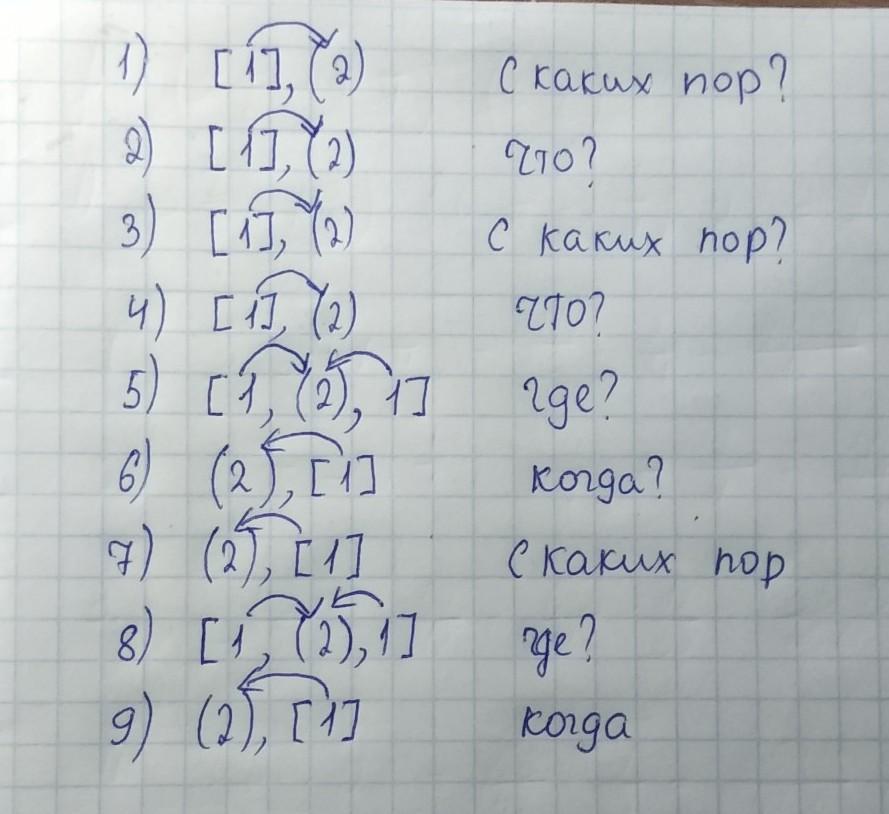 1) [1], (2) С каких пор?
2) [1], (2) Что?
3) [1], (2) С каких пор?
4) [1], (2) Что?
5) [1, (2), 1] где?
6) (2), [1] когда?
7) (2), [1] С каких пор
8) [1, (2), 1] где?
9) (2), [1] когда